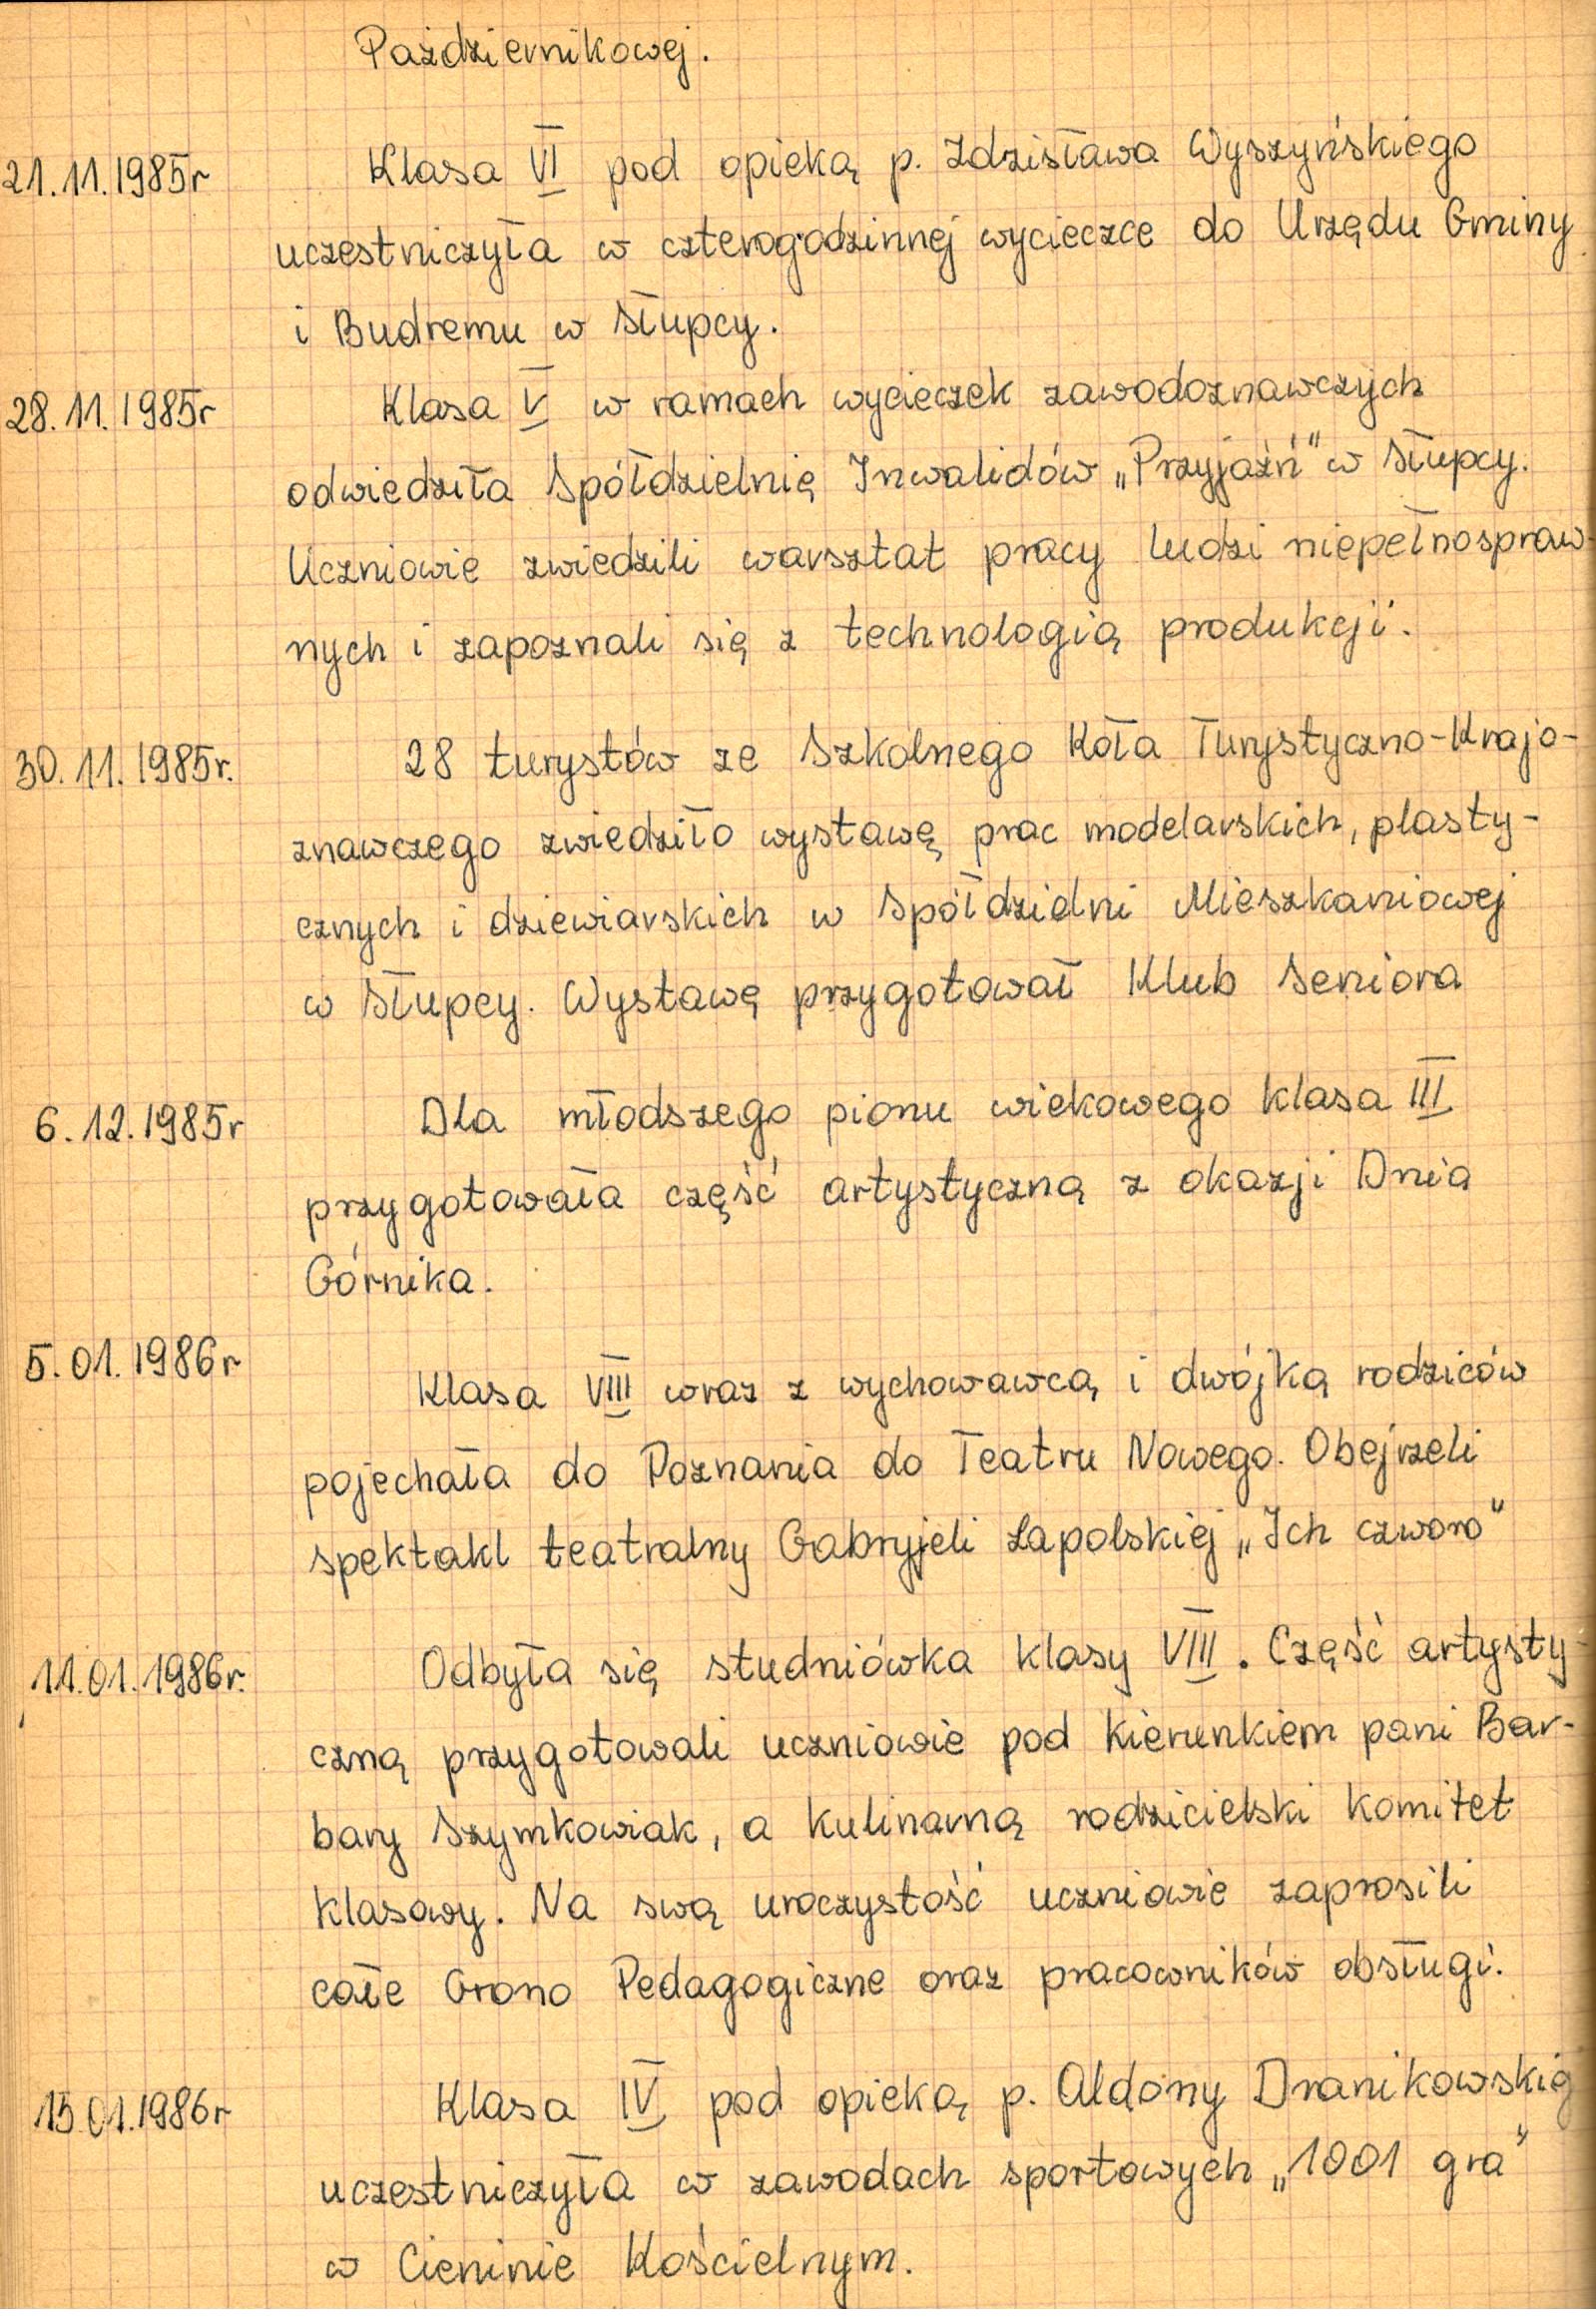 Październikowej.
21.11.1985r Klasa VI pod opieką p. Zdzisława Wyszyńskiego
uczestniczyła w czterogodzinnej wycieczce do Urzędu Gminy
i Budremu w Słupcy.
28.11.1985r Klasa V w ramach wycieczek zawodoznawczych
odwiedziła Spółdzielnię Inwalidów „Przyjaźń" w Słupcy.
Uczniowie zwiedzili warsztat pracy ludzi niepełnospraw-
nych i zapoznali się z technologią produkcji.
30.11.1985r. 28 turystów ze Szkolnego Koła Turystyczno-Krajo-
znawczego zwiedziło wystawę prac modelarskich, plasty-
cznych i dziewiarskich w Spółdzielni Mieszkaniowej
w Słupcy. Wystawę przygotował Klub Seniora
6.12.1985r Dla młodszego pionu wiekowego klasa III
przygotowała część artystyczną z okazji Dnia
Górnika.
5.01.1986r Klasa VIII wraz z wychowawcą i dwójką rodziców
pojechała do Poznania do Teatru Nowego. Obejrzeli
spektakl teatralny Gabryjeli Zapolskiej „Ich czworo"
11.01.1986r. Odbyła się studniówka klasy VIII. Część artysty-
czną przygotowali uczniowie pod kierunkiem pani Bar-
bary Szymkowiak, a kulinarną rodzicielski komitet
klasowy. Na swą uroczystość uczniowie zaprosili
całe Grono Pedagogiczne oraz pracowników obsługi.
15.01.1986r Klasa IV pod opieką p. Aldony Dranikowskiej
uczestniczyła w zawodach sportowych „1001 gra"
w Cieninie Kościelnym.